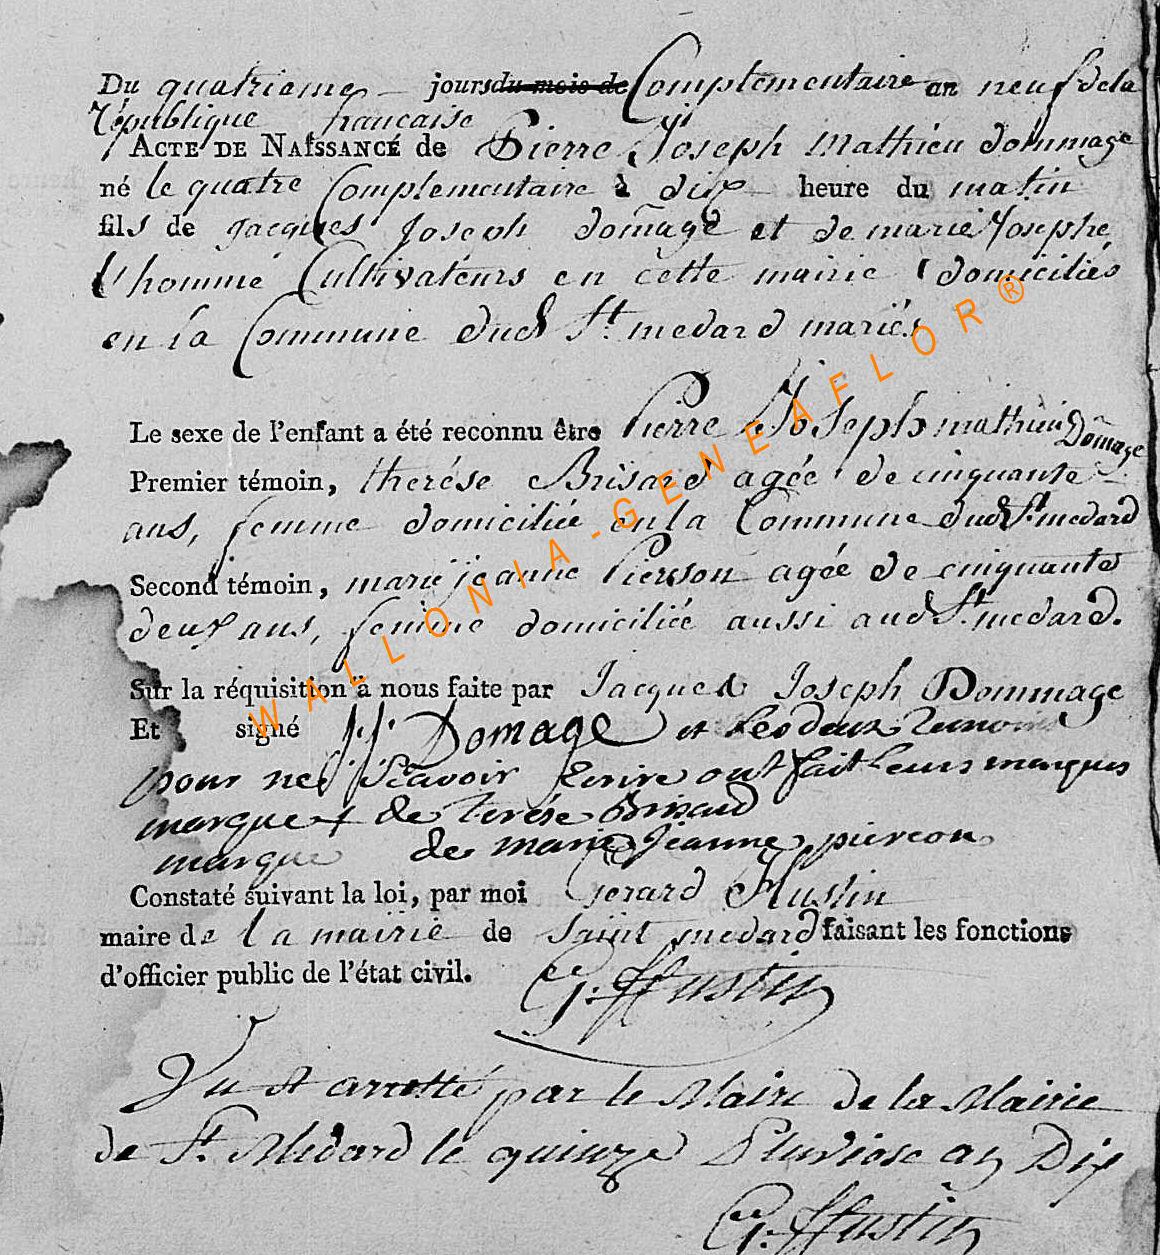 Du quatrieme jours du mois de Complementaire an neuf de la
République francaise
ACTE DE NAISSANCE de Pierre Joseph Mathieu dommage
né le quatre Complementaire à dix heure du matin
fils de Jacques Joseph domage et de marie Josephe
l'hommé Cultivateurs en cette mairie domiciliés
en la Commune dud St. medard mariés
Le sexe de l'enfant a été reconnu être Pierre Joseph mathieu Domage
Premier témoin, therése Brisard agée de cinquante
ans, femme domiciliée en la Commune dud St medard
Second témoin, marie jeanne Pierson agée de cinquante
deux ans, femme domiciliée aussi aud St. medard.
Sur la réquisition à nous faite par Jacques Joseph Dommage
Et signé J.J. Domage et les deux
pour ne Scavoir Ecrire ont fait leurs marques
marque + de terése Brisard
marque de marie Jeanne piercon
Constaté suivant la loi, par moi Gerard Hustin
maire de la mairie de Saint medard faisant les fonctions
d'officier public de l'état civil. G. Hustin
Vu et arretté par le Maire de la Mairie
de St. Medard le quinze Pluviose an Dix
G. Hustin
WALLONIA-GENEAFLOR®